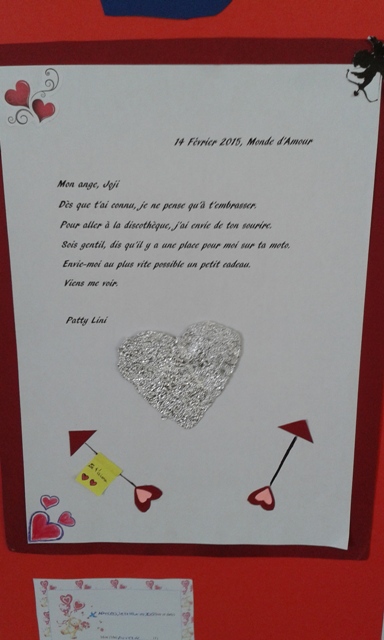 14 Février 2015, Monde d'Amour
Mon ange, Joji
Dès que t'ai connu, je ne pense qu'à t'embrasser.
Pour aller à la discothèque, j'ai envie de ton sourire.
Sois gentil, dis qu'il y a une place pour moi sur ta moto.
Envie-moi au plus vite possible un petit cadeau.
Viens me voir.
Patty Lini